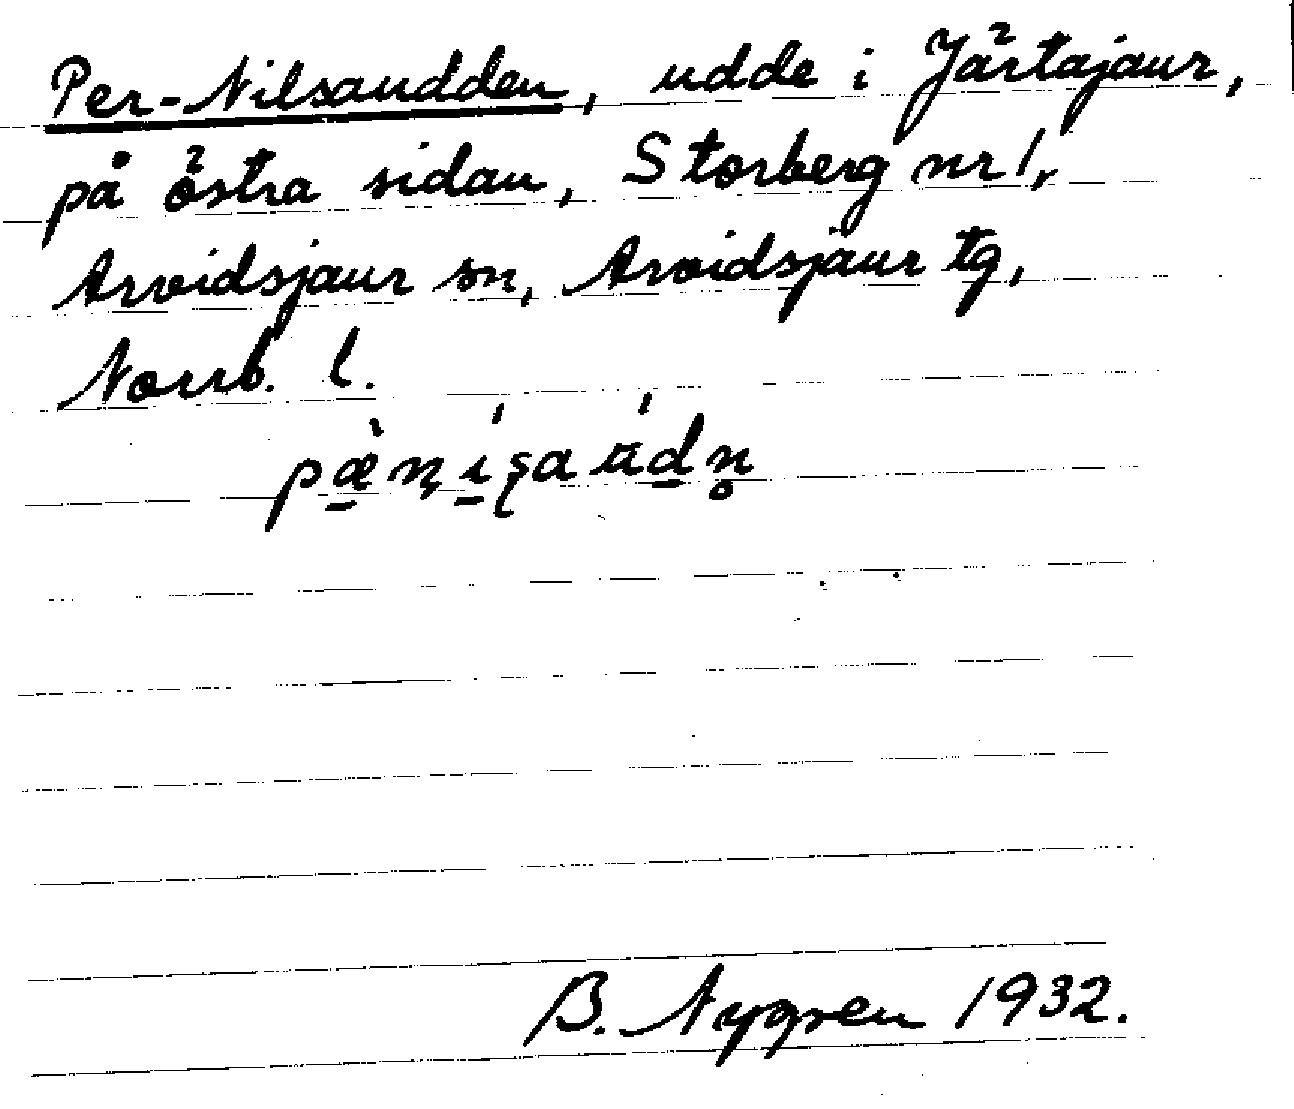 Per-Nilsaudden, udde i Järtajaur,
på östra sidan, Storberg nr 1,
Arvidsjaur sn, Arvidsjaur tg,
Norrb. l.
B. Nygren 1932.